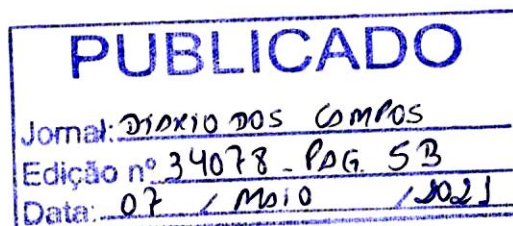 PUBLICADO
Jornal: DIARIO DOS CAMPOS
Edição nº 34078 - PAG. 5B
Data: 07 / MAIO / 2021